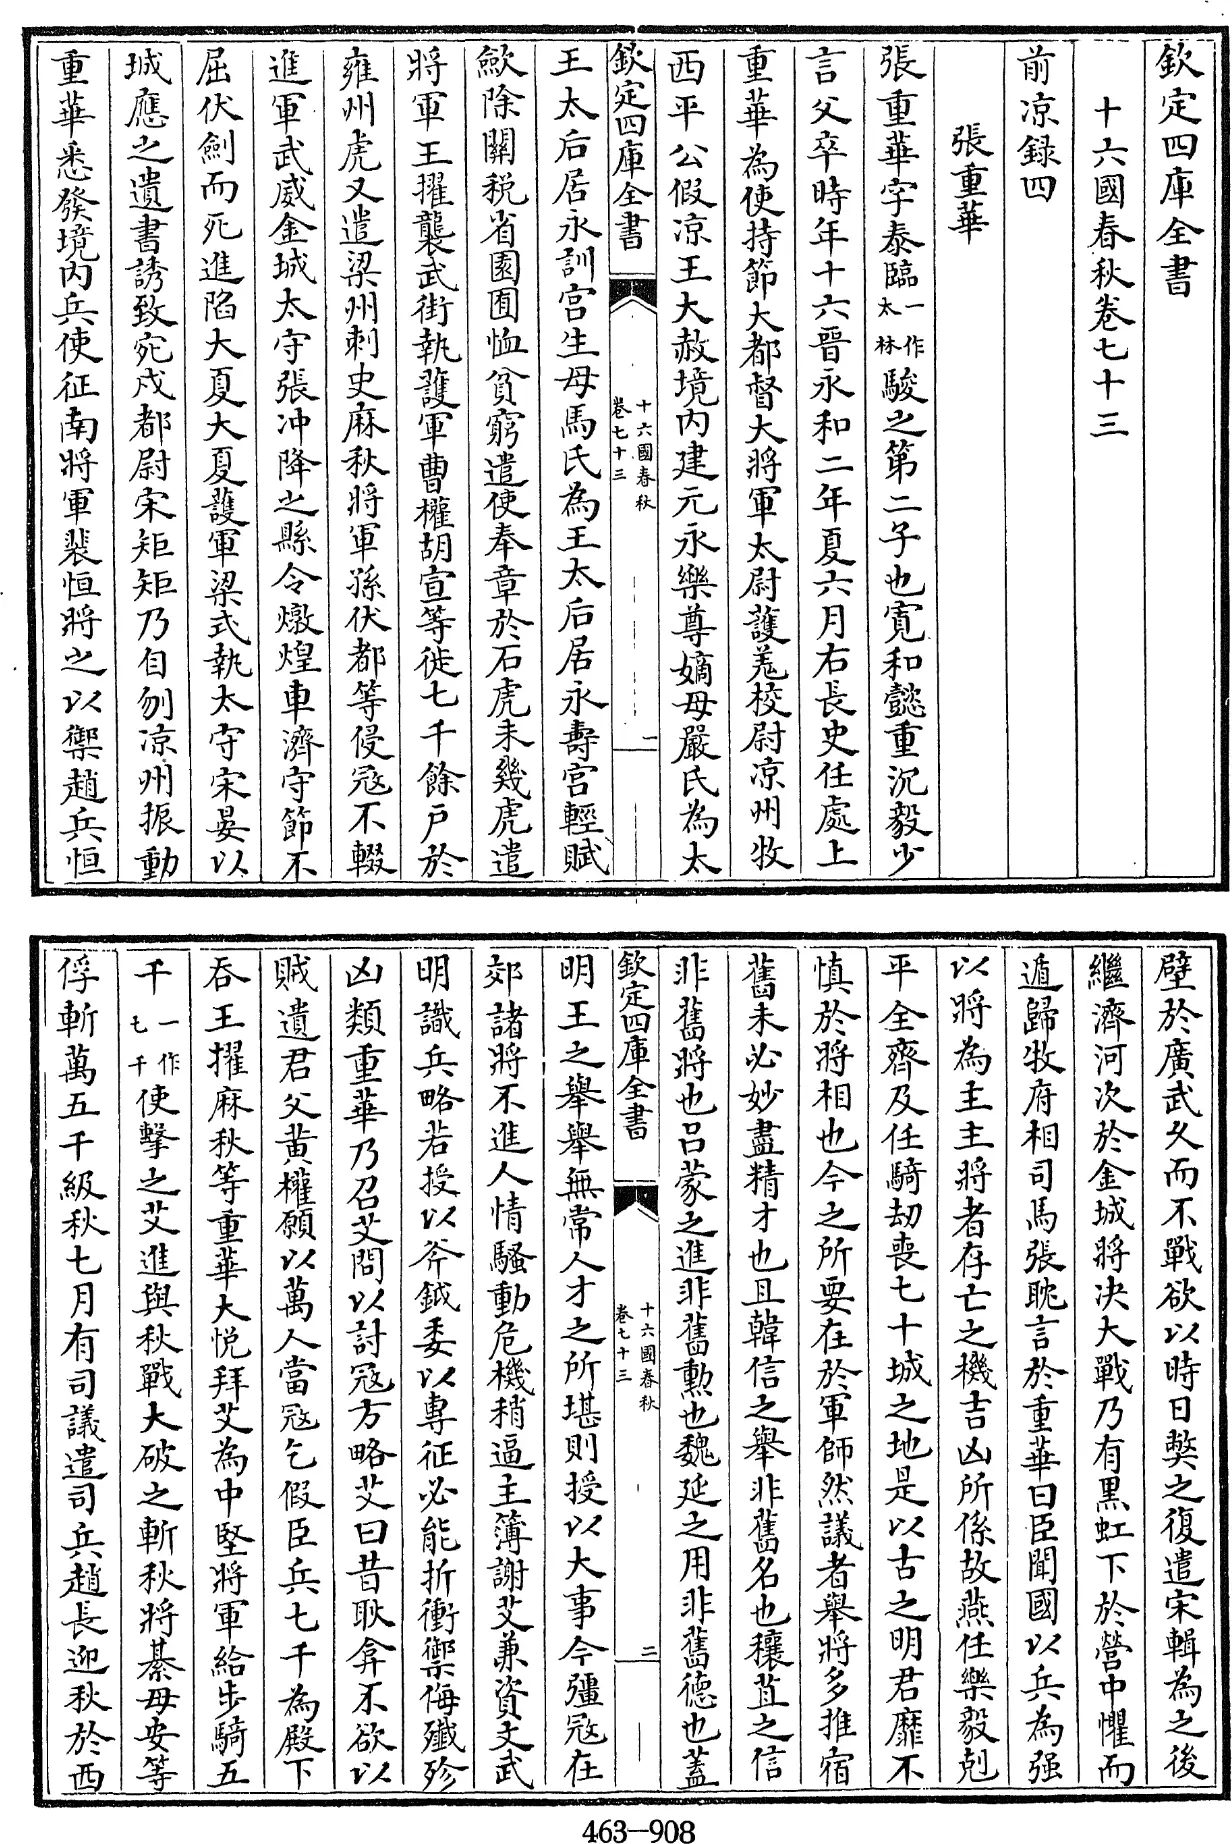 欽定四庫全書
十六國春秋卷七十三
前凉録四
張重華
張重華字泰臨一作太林駿之第二子也寛和懿重沉毅少
言父卒時年十六晉永和二年夏六月右長史任處上
重華為使持節大都督大將軍太尉護羗校尉凉州牧
西平公假凉王大赦境内建元永樂尊嫡母嚴氏為太
欽定四庫全書
十六國春秋
卷七十三
一
王太后居永訓宫生母馬氏為王太后居永壽宫輕賦
歛除關税省園囿恤貧窮遣使奉章於石虎未幾虎遣
將軍王擢襲武街執護軍曹權胡宣等徙七千餘户於
雍州虎又遣梁州刺史麻秋將軍孫伏都等侵冦不輟
進軍武威金城太守張冲降之縣令燉煌車濟守節不
屈伏劍而死進陷大夏大夏護軍梁式執太守宋晏以
城應之遺書誘致宛戍都尉宋矩矩乃自刎凉州振動
重華悉發境内兵使征南將軍裴恒將之以禦趙兵恒
壁於廣武久而不戰欲以時日獘之復遣宋輯為之後
繼濟河次於金城將决大戰乃有黒虹下於營中懼而
遁歸牧府相司馬張耽言於重華曰臣聞國以兵為强
以將為主主將者存亡之機吉凶所係故燕任樂毅剋
平全齊及任騎劫喪七十城之地是以古之明君靡不
慎於將相也今之所要在於軍師然議者舉將多推宿
舊未必妙盡精才也且韓信之舉非舊名也穰苴之信
非舊將也吕蒙之進非舊勲也魏延之用非舊德也蓋
欽定四庫全書
十六國春秋
卷七十三
二
明王之舉舉無常人才之所堪則授以大事今彊冦在
郊諸將不進人情騷動危機稍逼主簿謝艾兼資文武
明識兵略若授以斧鉞委以專征必能折衝禦侮殱殄
凶類重華乃召艾問以討冦方略艾曰昔耿弇不欲以
賊遺君父黄權願以萬人當冦乞假臣兵七千為殿下
吞王擢麻秋等重華大悦拜艾為中堅將軍給步騎五
千一作七千使擊之艾進與秋戰大破之斬秋將綦毋安等
俘斬萬五千級秋七月有司議遣司兵趙長迎秋於西
463—908